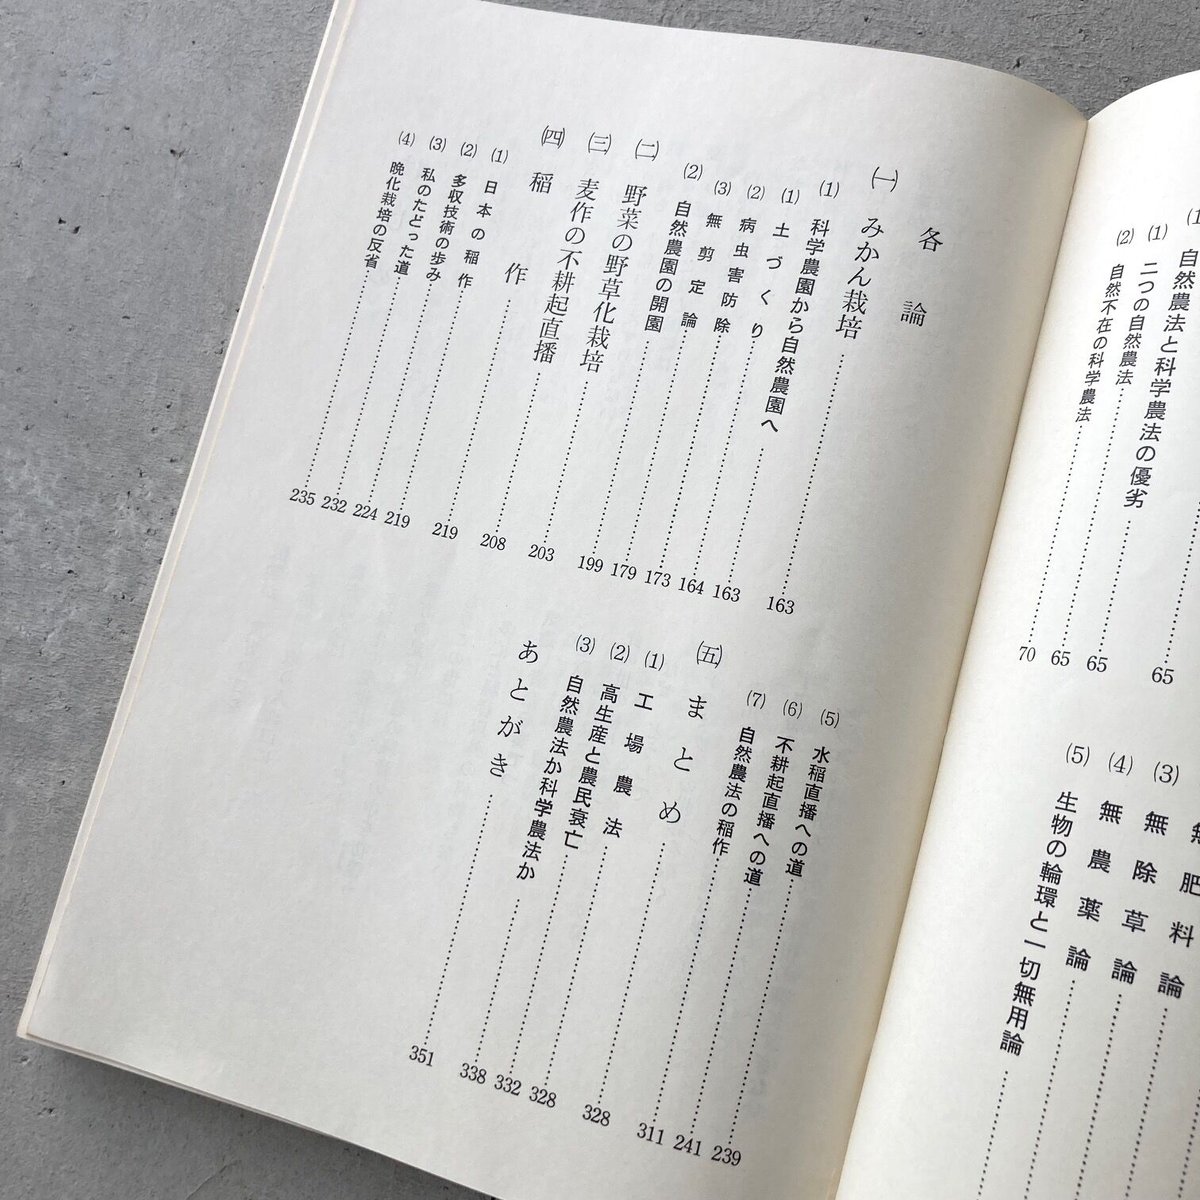 65
(1) 自然農法と科学農法の優劣……65
(1) 二つの自然農法……65
(2) 自然不在の科学農法……70
肥料論
(3) 無除草論
(4) 無農薬論
(5) 生物の輪環と一切無用論
各論
㈠ みかん栽培……163
(1) 科学農園から自然農園へ……163
(1) 土づくり……164
(2) 病虫害防除……173
(3) 無剪定論……179
(2) 自然農園の開園……199
㈡ 野菜の野草化栽培……203
㈢ 麦作の不耕起直播……208
㈣ 稲作……219
(1) 日本の稲作……219
(2) 多収技術の歩み……224
(3) 私のたどった道……232
(4) 晩化栽培の反省……235
(5) 水稲直播への道……239
(6) 不耕起直播への道……241
(7) 自然農法の稲作……311
㈤ まとめ……328
(1) 工場農法……328
(2) 高生産と農民衰亡……332
(3) 自然農法か科学農法か……338
あとがき……351